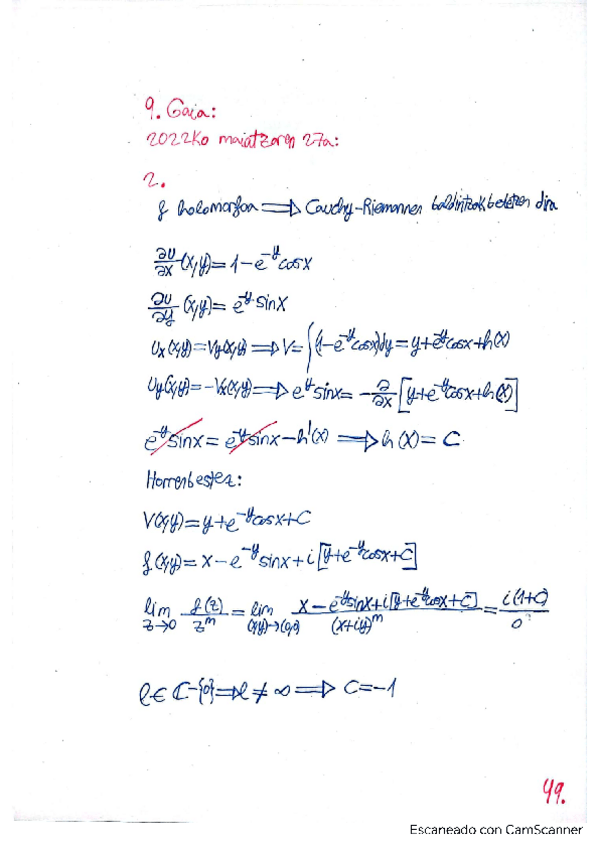 9. Gaia:
2022ko maiatzaren 27a:
2.
f holomorfoa ⟹ Cauchy-Riemannen baldintzak betetzen dira
∂u/∂x (x,y) = 1 - e^{-y} cosx
∂u/∂y (x,y) = e^{-y} sinx
Ux(x,y) = Vy(x,y) ⟹ V = ∫(1 - e^{-y} cosx)dy = y + e^{-y} cosx + h(x)
Uy(x,y) = -Vx(x,y) ⟹ e^{-y} sinx = -∂/∂x [y + e^{-y} cosx + h(x)]
e^{-y} sinx = e^{-y} sinx - h'(x) ⟹ h(x) = C
Horrenbestez:
V(x,y) = y + e^{-y} cosx + C
f(x,y) = x - e^{-y} sinx + i[y + e^{-y} cosx + C]
lim_{z→0} f(z)/z^m = lim_{(x,y)→(0,0)} (x - e^{-y} sinx + i[y + e^{-y} cosx + C])/(x+iy)^m = i(1+C)/0
l ∈ ℂ-{0} ⟹ l ≠ ∞ ⟹ C = -1
49.
Escaneado con CamScanner